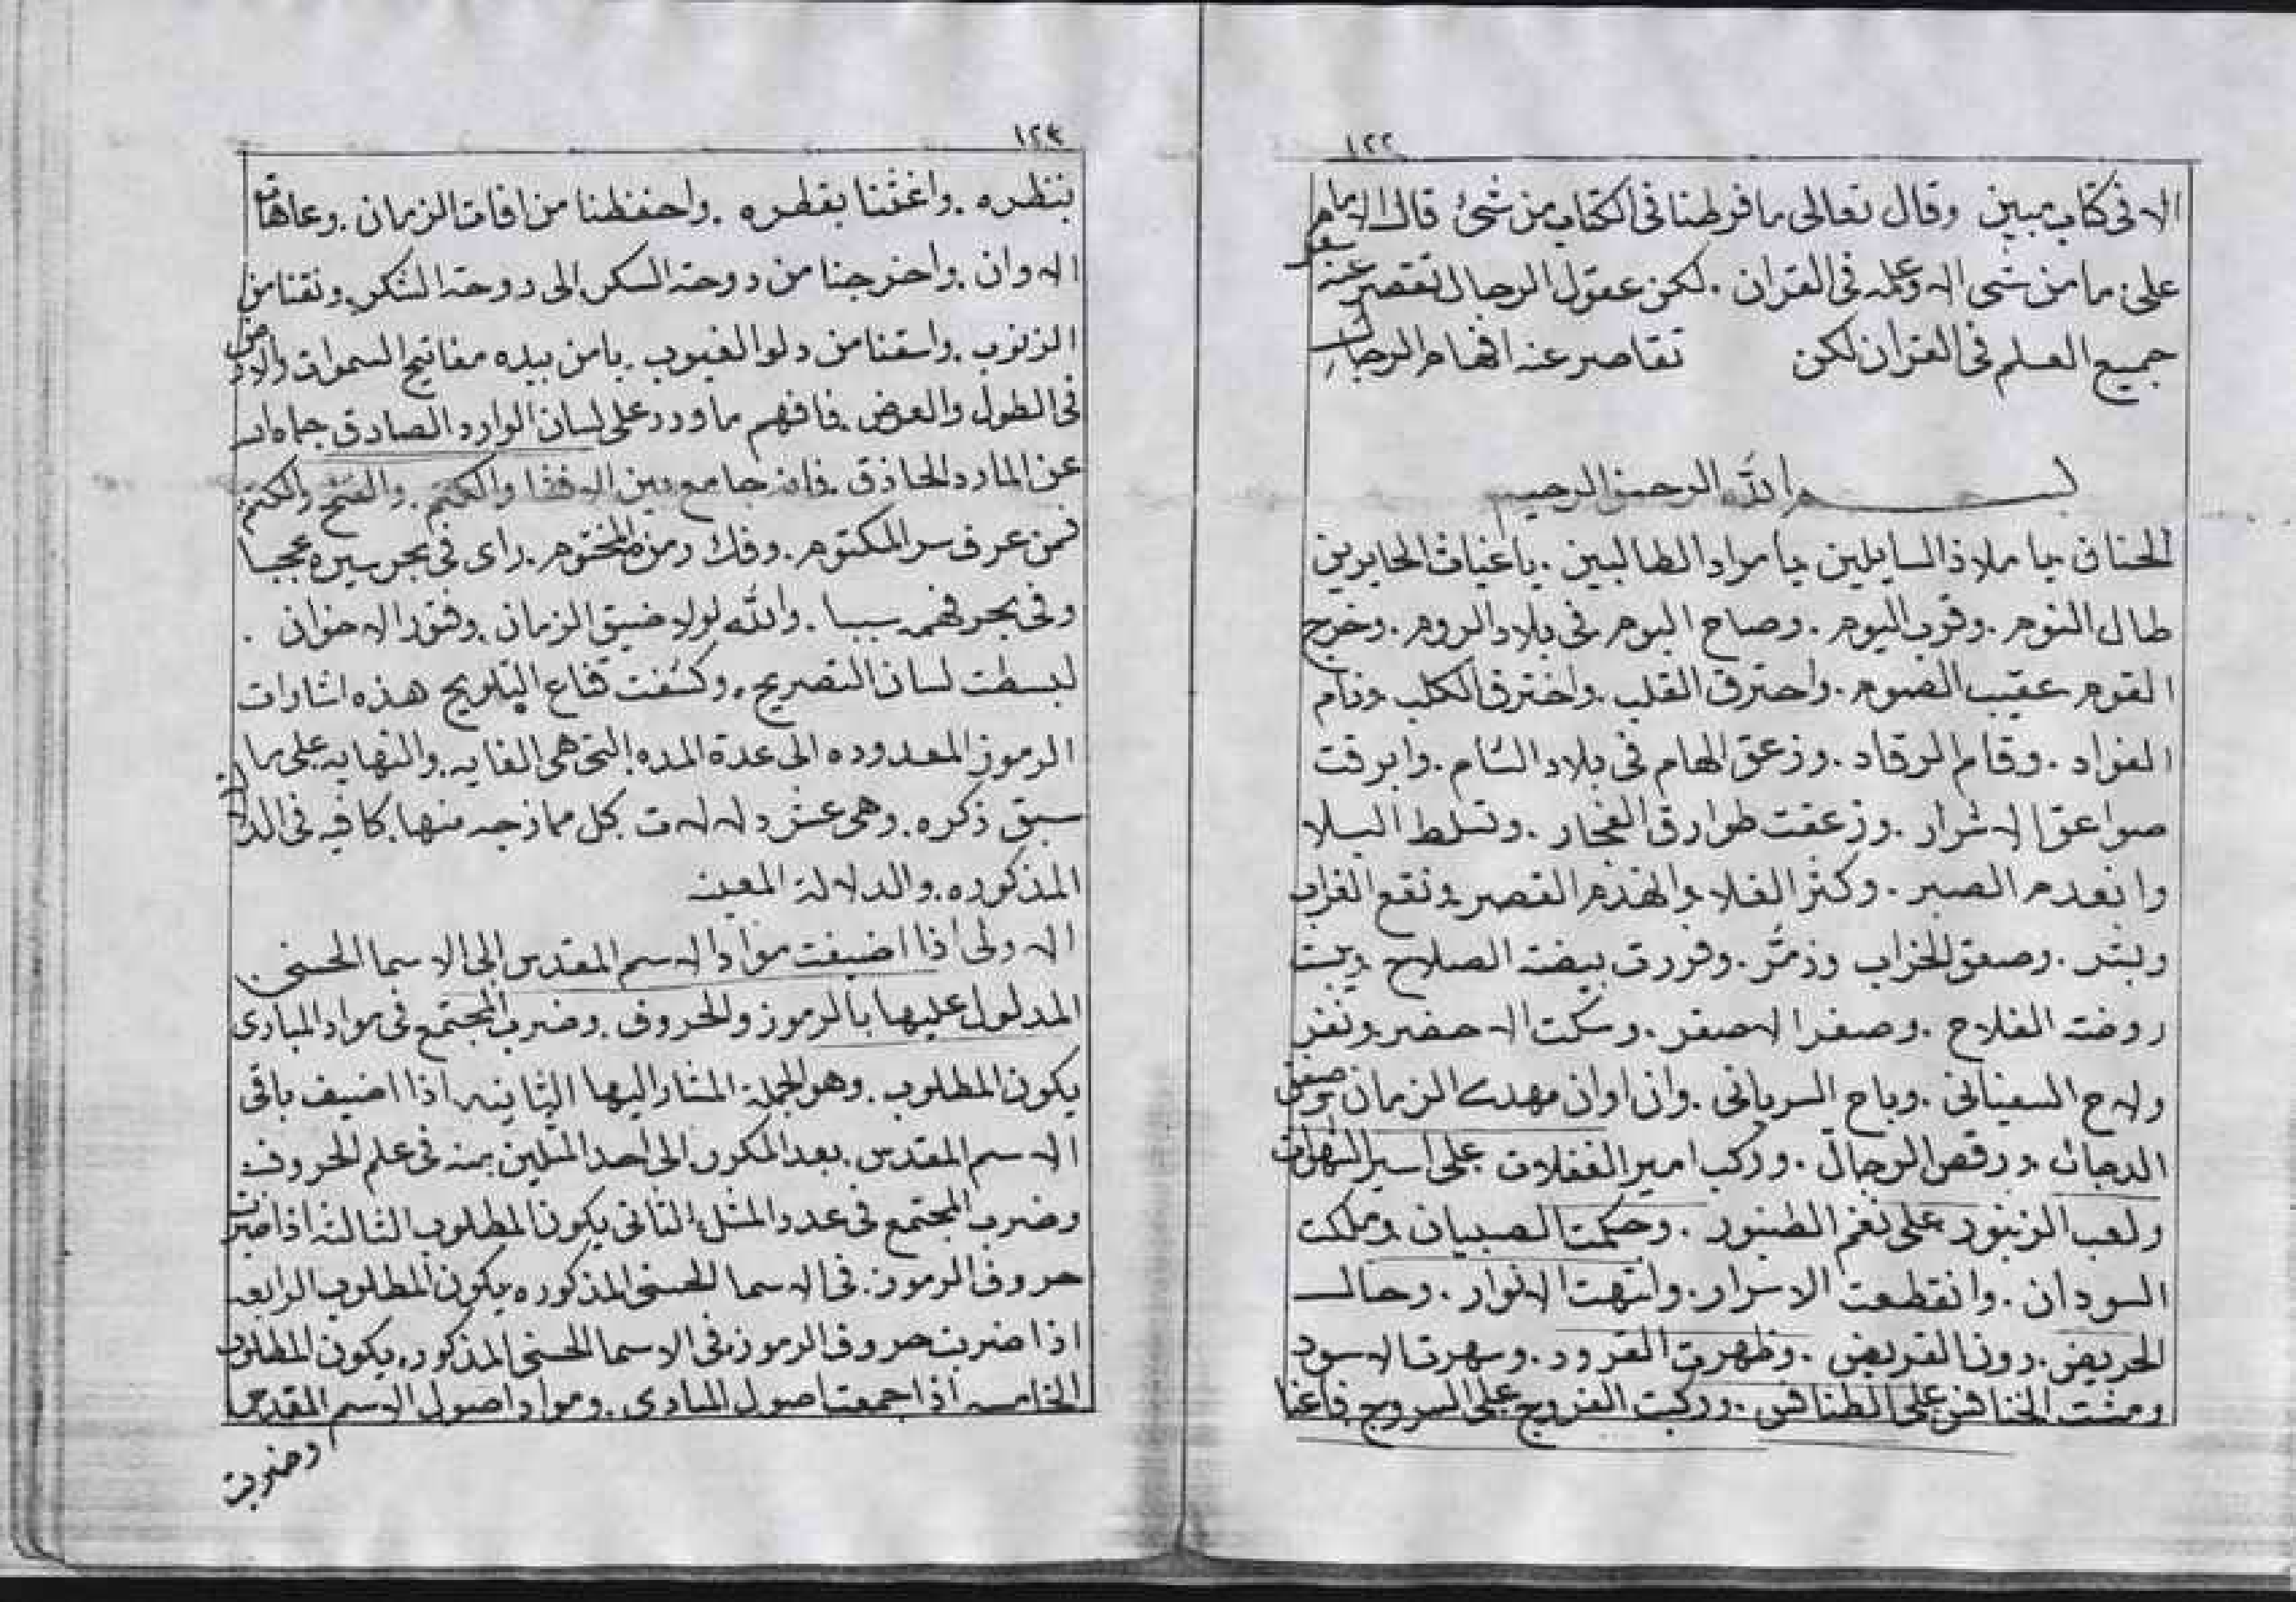 ١٢٢
الا فى كتاب مبين وقال تعالى ما فرطنا فى الكتاب من شئ قال الامام
على ما من شى الا وعلمه فى القران . لكن عقول الرجال تقصر عنه
جميع العلم فى القران لكن تقاصر عنه افهام الرجال
بسم الله الرحمن الرحيم
الحنان يا ملاذ السايلين يا مراد الطالبين . يا غياث الحايرين
طال النوم . وقرب اليوم . وصاح البوم فى بلاد الروم . وخرج
القوم عقيب الصوم . واحترق القلب . واخترق الكلب . ونام
الفواد . وقام الرقاد . وزعق الهام فى بلاد الشام . وابرقت
صواعق الاشرار . وزعقت طوارق الفجار . وتسلط البلا
وانعدم الصبر . وكثر الغلا وانهدم القصر ونقع الغراب
وبشر . وصعق الخراب وزمر . وفررت بيضة الصلاح ويبت
روضة الفلاح . وصفر الاصفر . وسكت الاخضر ونفر
ولاح السفيانى . وباح السريانى . وان اوان مهدى الزمان
الدجال . ورقص الرجال . وركب امير الغفلات على اسير الشهوات
ولعب الزنبور على نغم الطنبور . وحكمت الصبيان وملكت
السودان . وانقطعت الاسرار . وانتهت الانوار . وحال
الحريض . دون القريض . وظهرت القرود . وسهرت الاسود
ومشت الخنافس على الطنافس . وركبت الفروج على السروج فاغثنا
١٢٣
بنظره . واغثنا بقطره . واحفظنا من افات الزمان . وعاهات
الاوان . واخرجنا من دوحة السكر الى دوحة الشكر ونقنا من
الذنوب . واسقنا من دلو الغيوب . يا من بيده مفاتيح السموات والارض
فى الطول والعرض . فافهم ما ورد على لسان الوارد الصادق
عن المارد الحاذق . فانه جامع بين الافشا والكتم . والفتح والكتم
فمن عرف سر المكتوم . وفك رمزه المختوم . راى فى بحر سيره عجبا
وفى بحر فهمه سببا . والله لولا ضيق الزمان . وفتور الاخوان .
لبسطت لسان التصريح . وكشفت قناع التلويح هذه اشارات
الرموز المعدوده الى عدة المده التى هى الغايه والنهايه على ما
سبق ذكره . وهى عشر دلالات كل نماذجه منها كافيه فى
المذكوره . والدلالة المعينه
الاولى اذا اضيفت مواد الاسم المقدس الى الاسما الحسنى
المدلول عليها بالرموز والحروف . وضرب المجتمع فى مواد المبادى
يكون المطلوب . وهو الجملة المشار اليها الثانيه اذا اضيف باقى
الاسم المقدس . بعد المكرر الى احد المثلين منه فى علم الحروف
وضرب المجتمع فى عدد المثل الثانى يكون المطلوب الثالثه اذا ضربت
حروف الرموز . فى الاسما الحسنى المذكوره يكون المطلوب الرابعه
اذا ضربت حروف الرموز فى الاسما الحسنى المذكوره يكون المطلوب
الخامسه اذا جمعت اصول المبادى . ومواد اصول الاسم المقدس
وضربت